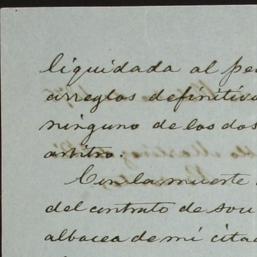 liquidada al
arreglos definitiv
ninguno de los dos
arbitro.
Con la muerte
del contrato de
albacea de mi cita